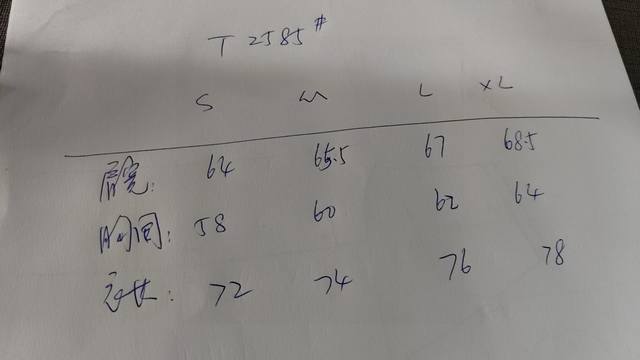 T 2585#
S M L XL
肩宽: 64 65.5 67 68.5
胸围: 58 60 62 64
衣长: 72 74 76 78